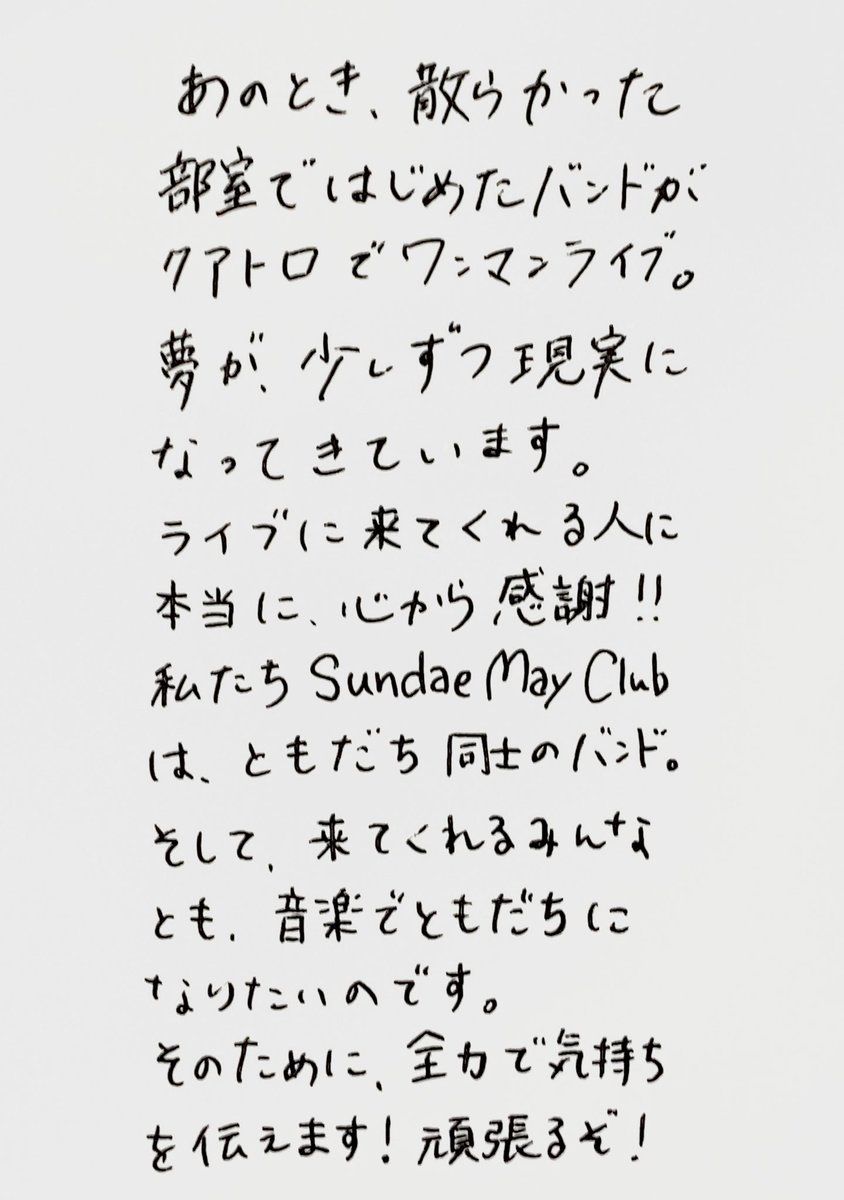 あのとき、散らかった
部室ではじめたバンドが
クアトロでワンマンライブ。
夢が、少しずつ現実に
なってきています。
ライブに来てくれる人に
本当に、心から感謝!!
私たちSundae May Club
は、ともだち同士のバンド。
そして、来てくれるみんな
とも、音楽でともだちに
なりたいのです。
そのために、全力で気持ち
を伝えます!頑張るぞ!